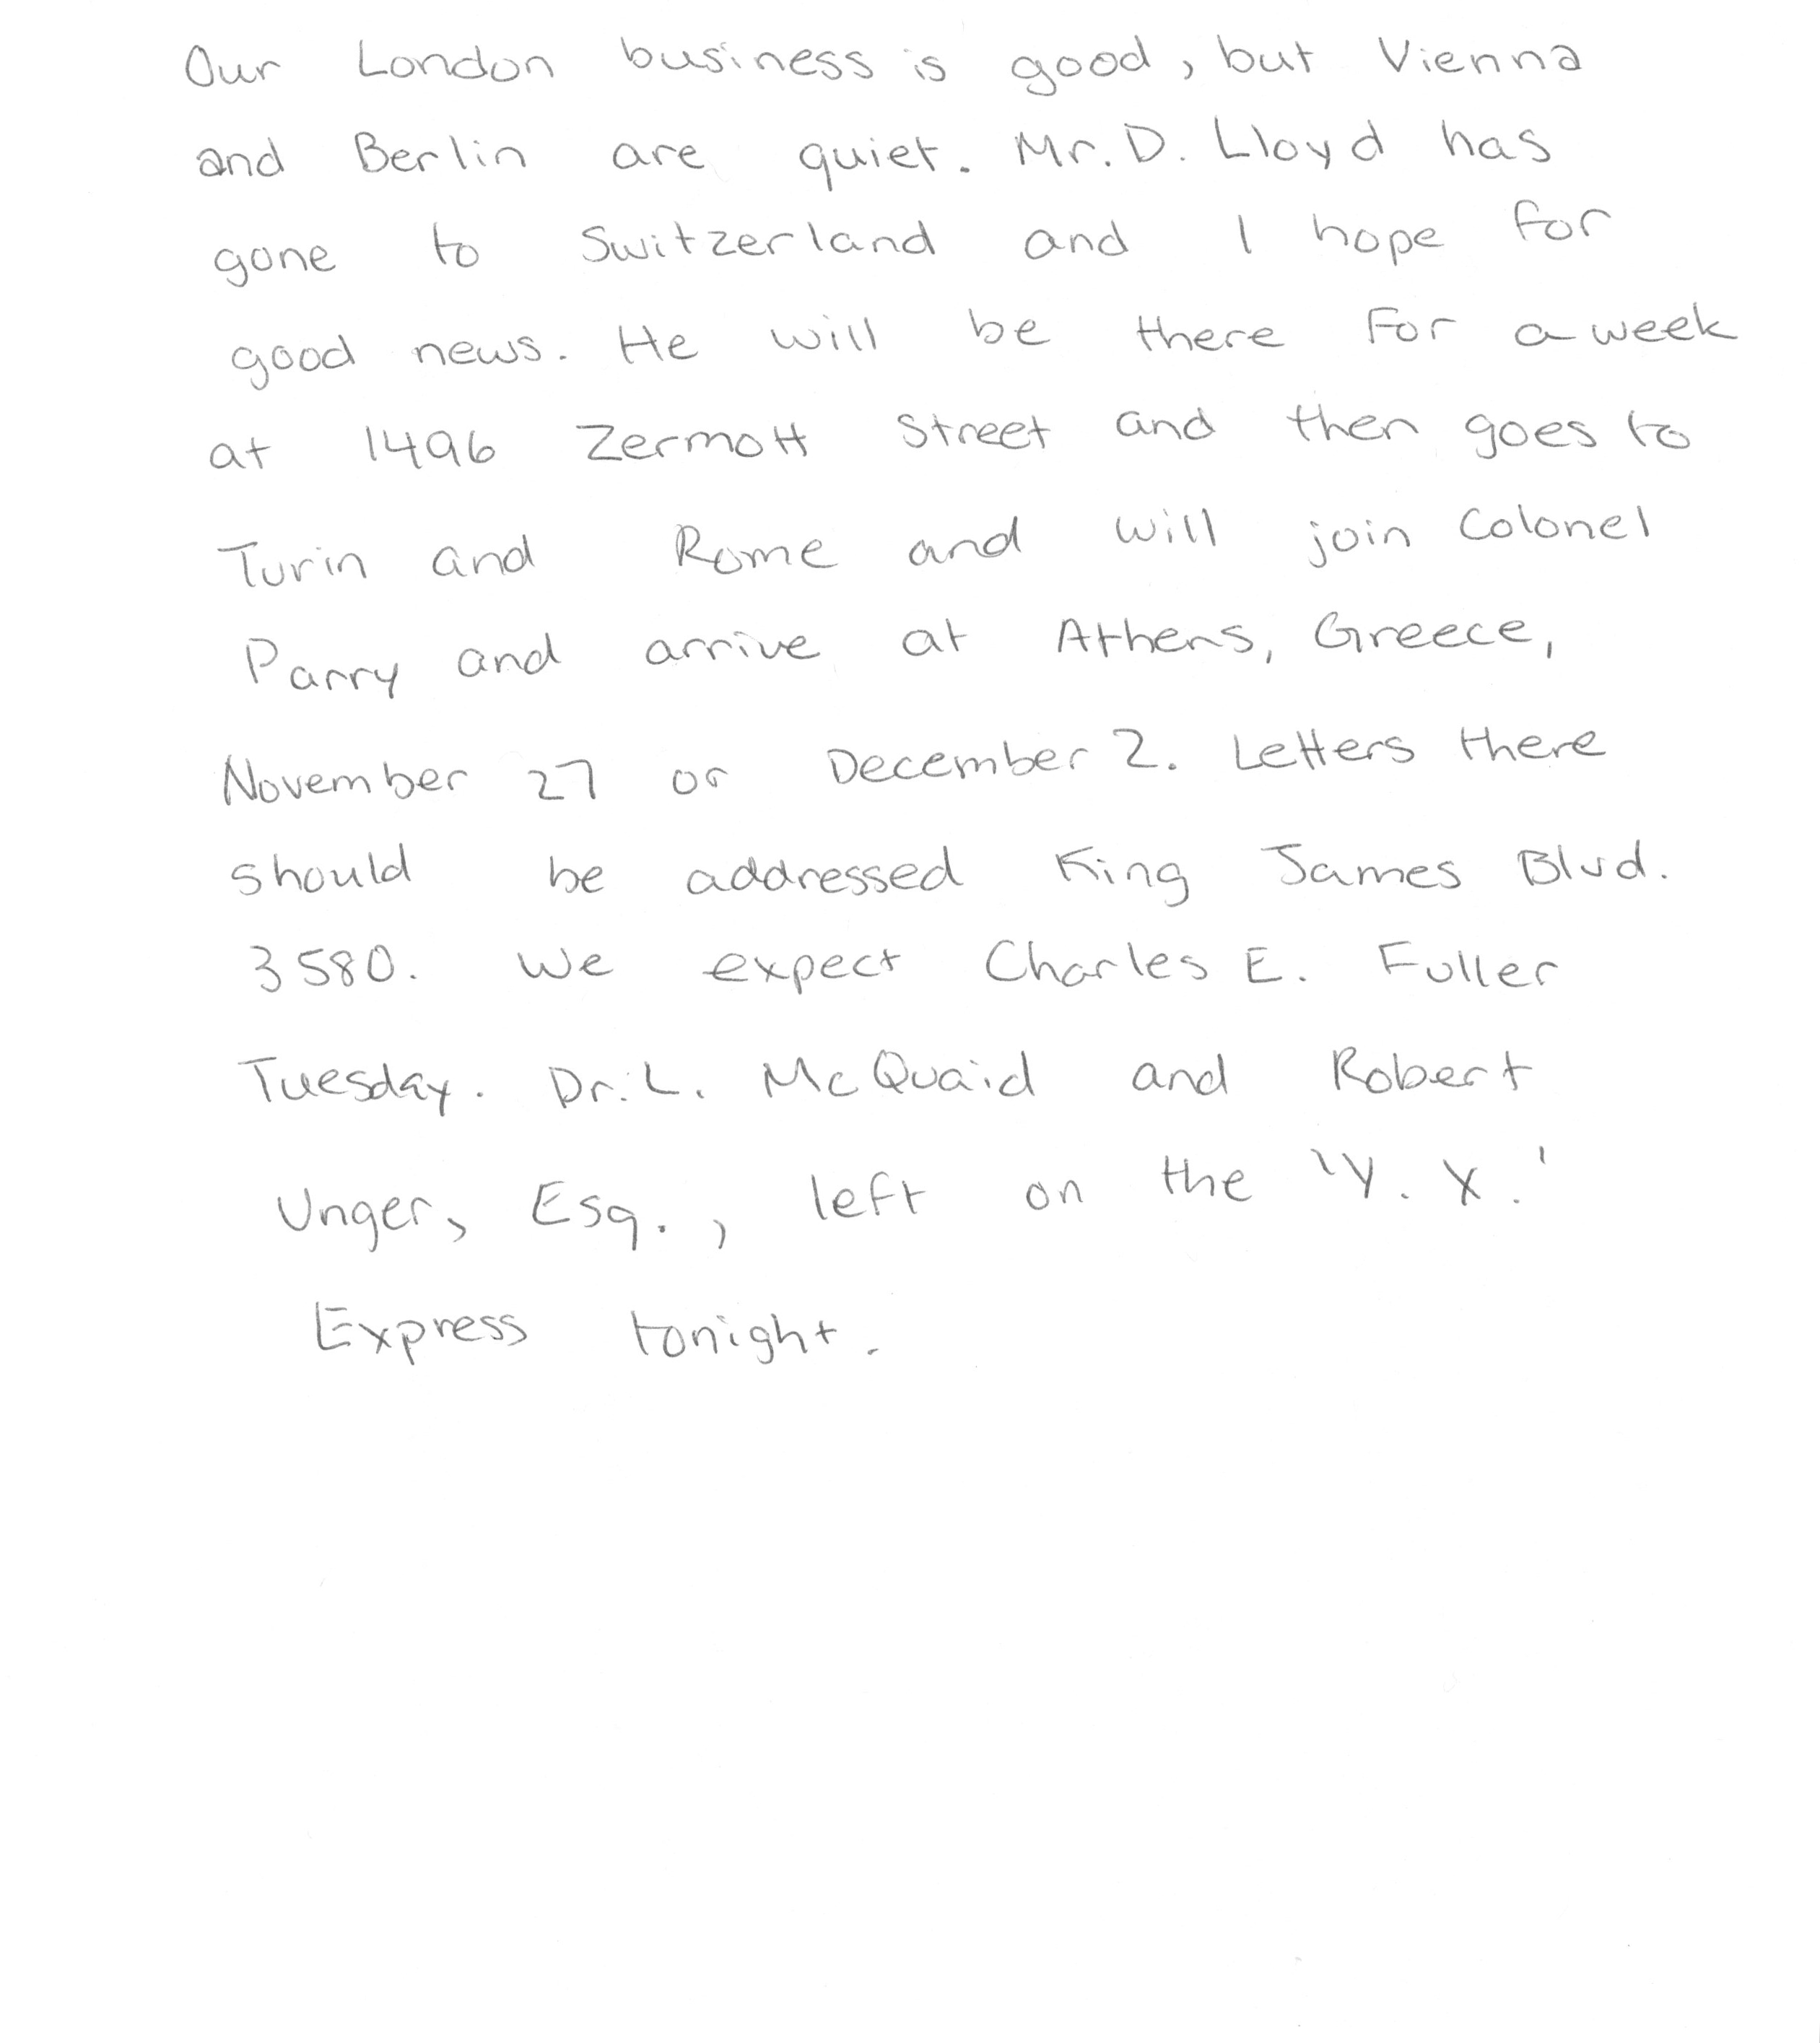 Our London business is good, but Vienna
and Berlin are quiet. Mr. D. Lloyd has
gone to Switzerland and I hope for
good news. He will be there for a week
at 1496 Zermott Street and then goes to
Turin and Rome and will join Colonel
Parry and arrive at Athens, Greece,
November 27 or December 2. Letters there
should be addressed King James Blvd.
3580. We expect Charles E. Fuller
Tuesday. Dr. L. McQuaid and Robert
Unger, Esq., left on the 'Y. X.'
Express tonight.